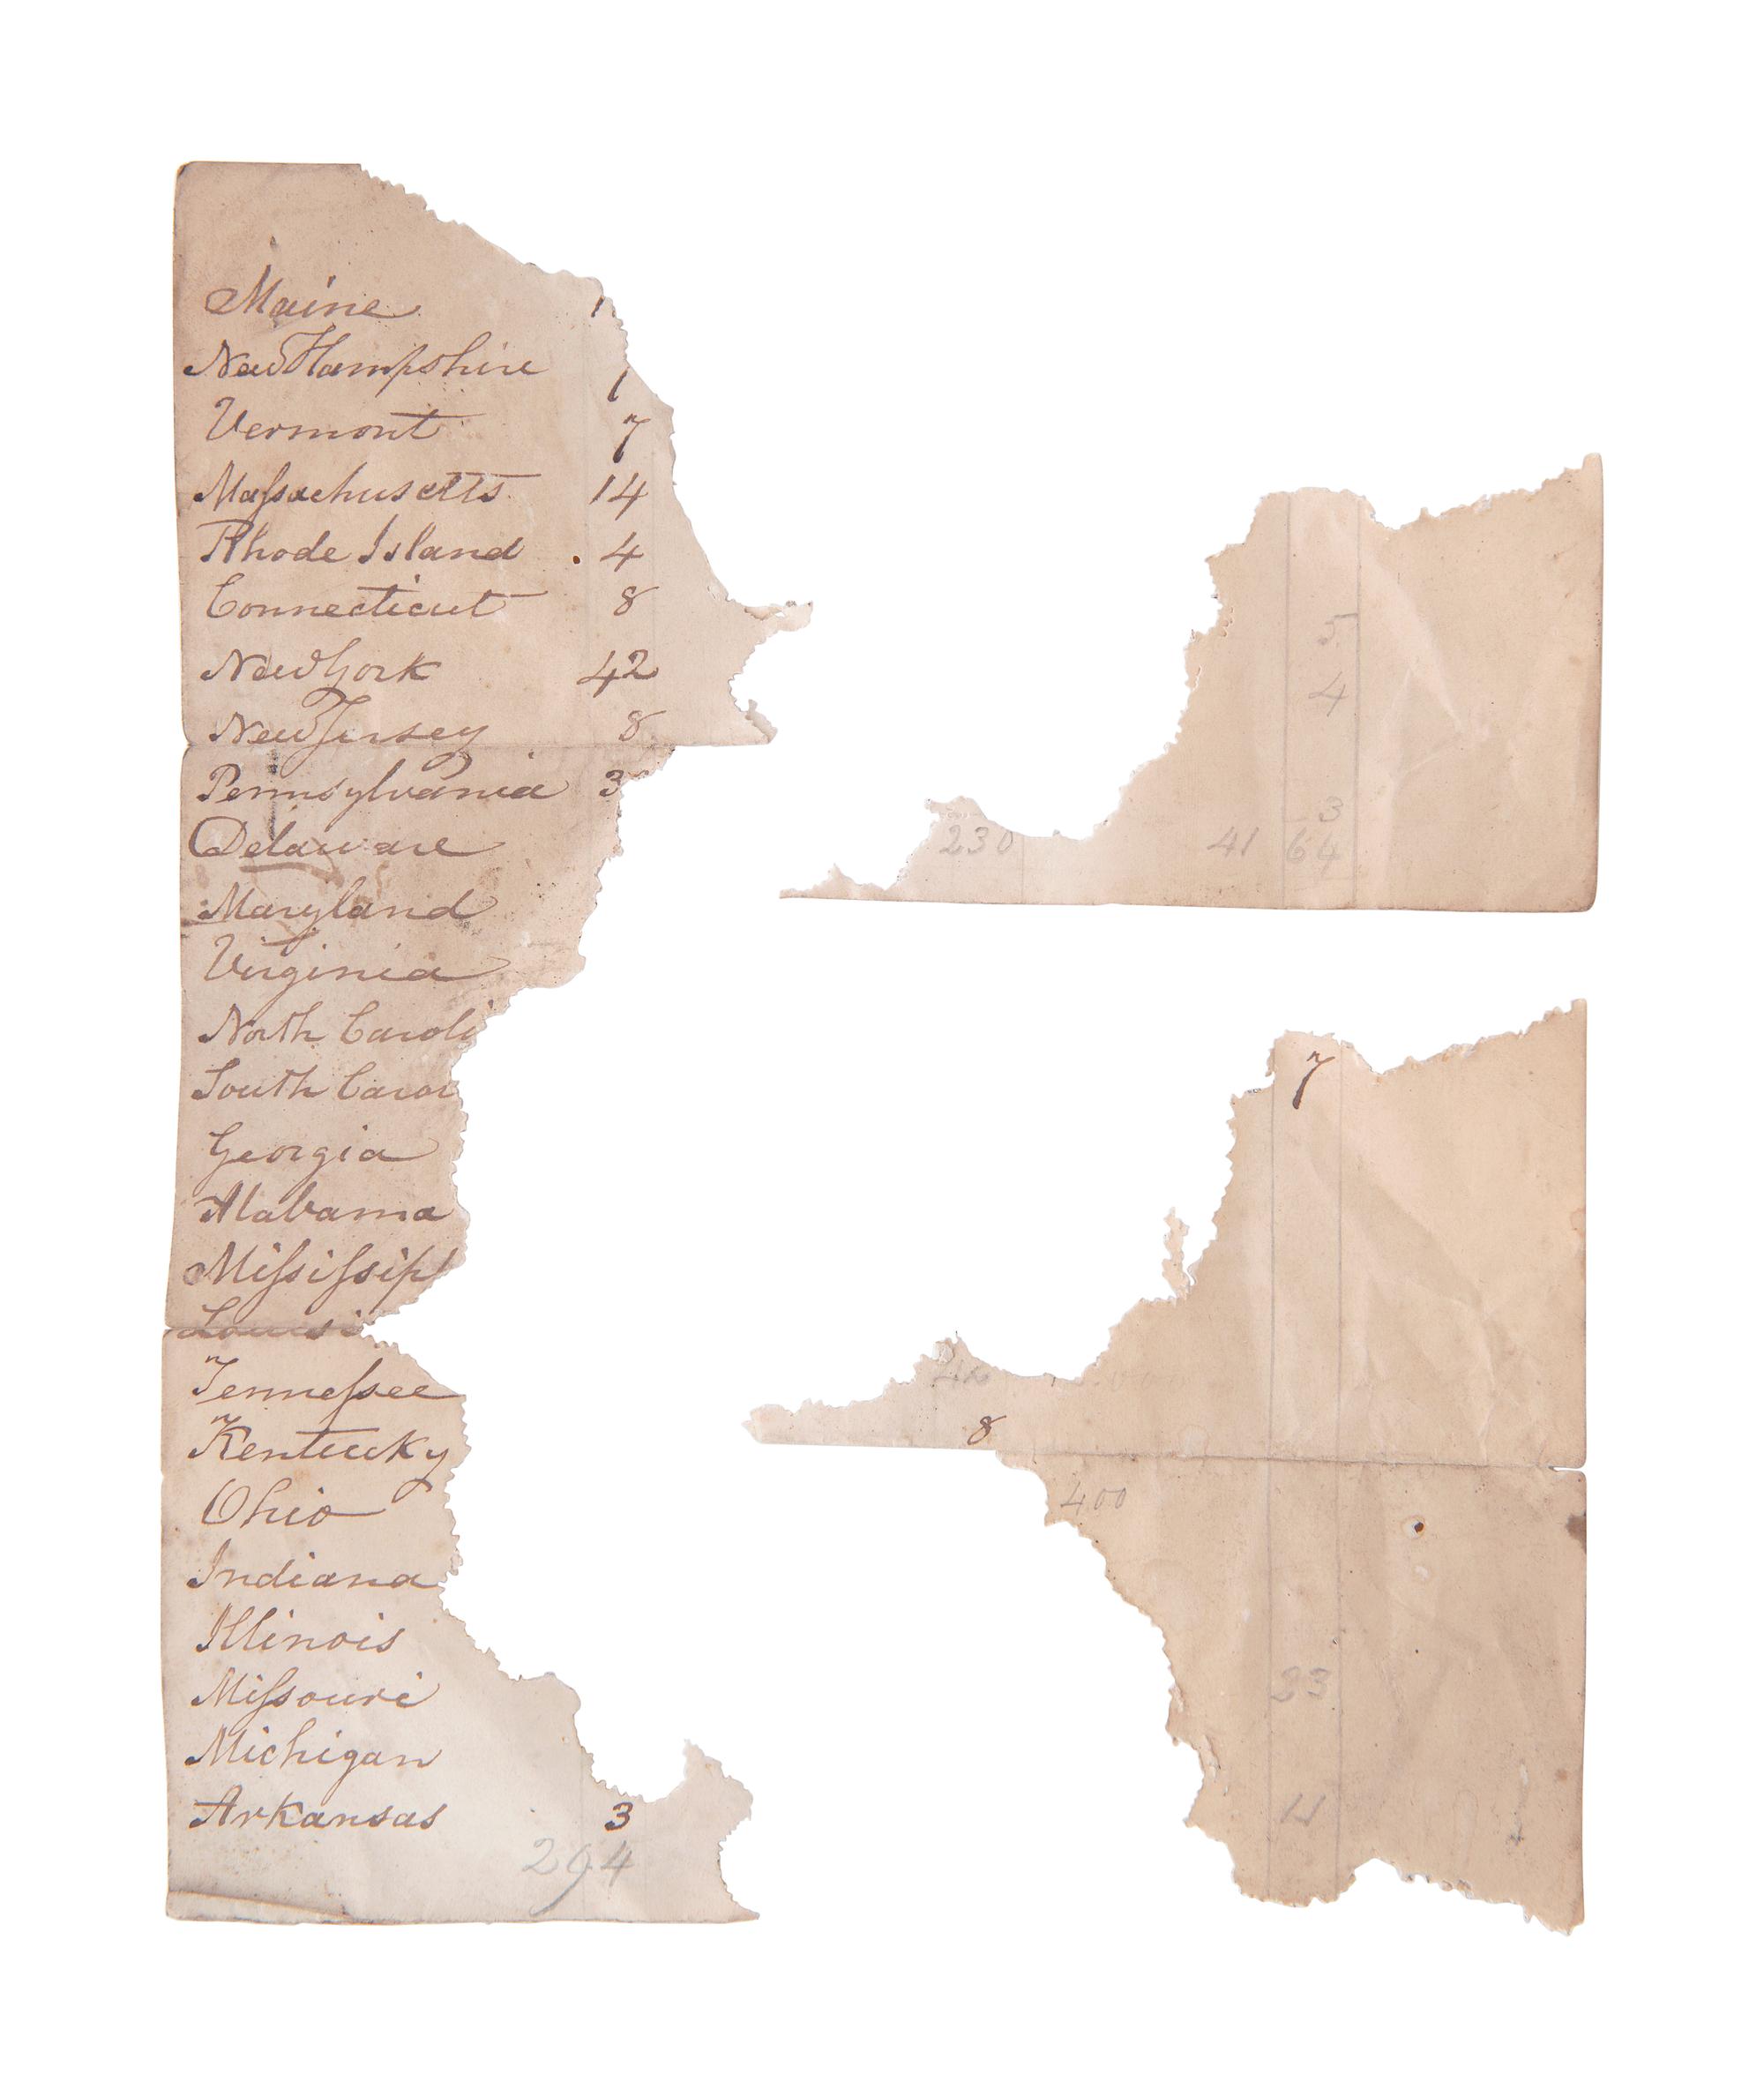 Maine 1
New Hampshire 1
Vermont 7
Maſsachusetts 14
Rhode Island 4
Connecticut 8
New York 42
New Jersey 8
Pennsylvania 3
Delaware
Maryland
Virginia
North Caroli
South Caro
Georgia
Alabama
Miſsiſsip
Louisi
Tenneſsee
Kentucky
Ohio
Indiana
Illinois
Miſsouri
Michigan
Arkansas 3
294
5
4
3
230 41 64
7
8
400
23